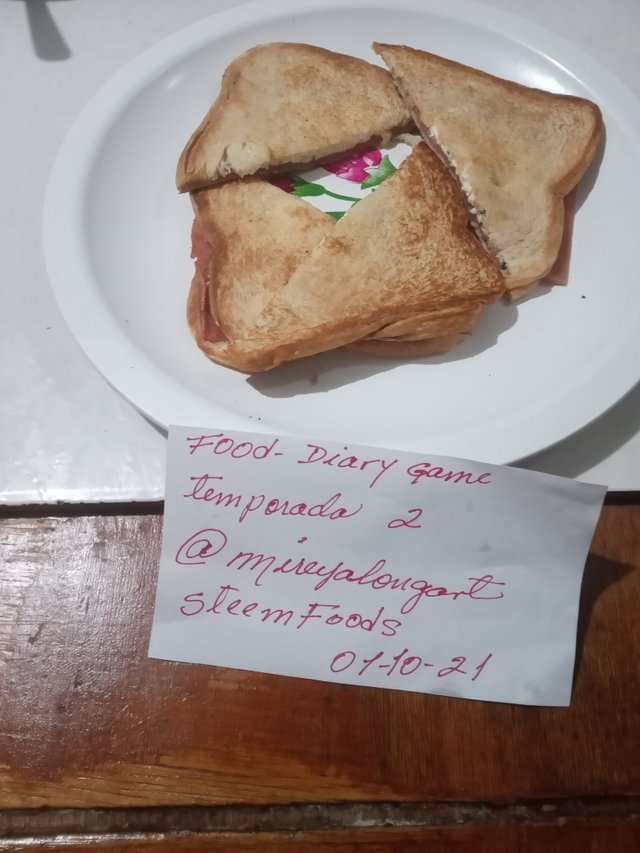 Food-Diary Game
temporada 2
@mireyalongart
SteemFoods
01-10-21